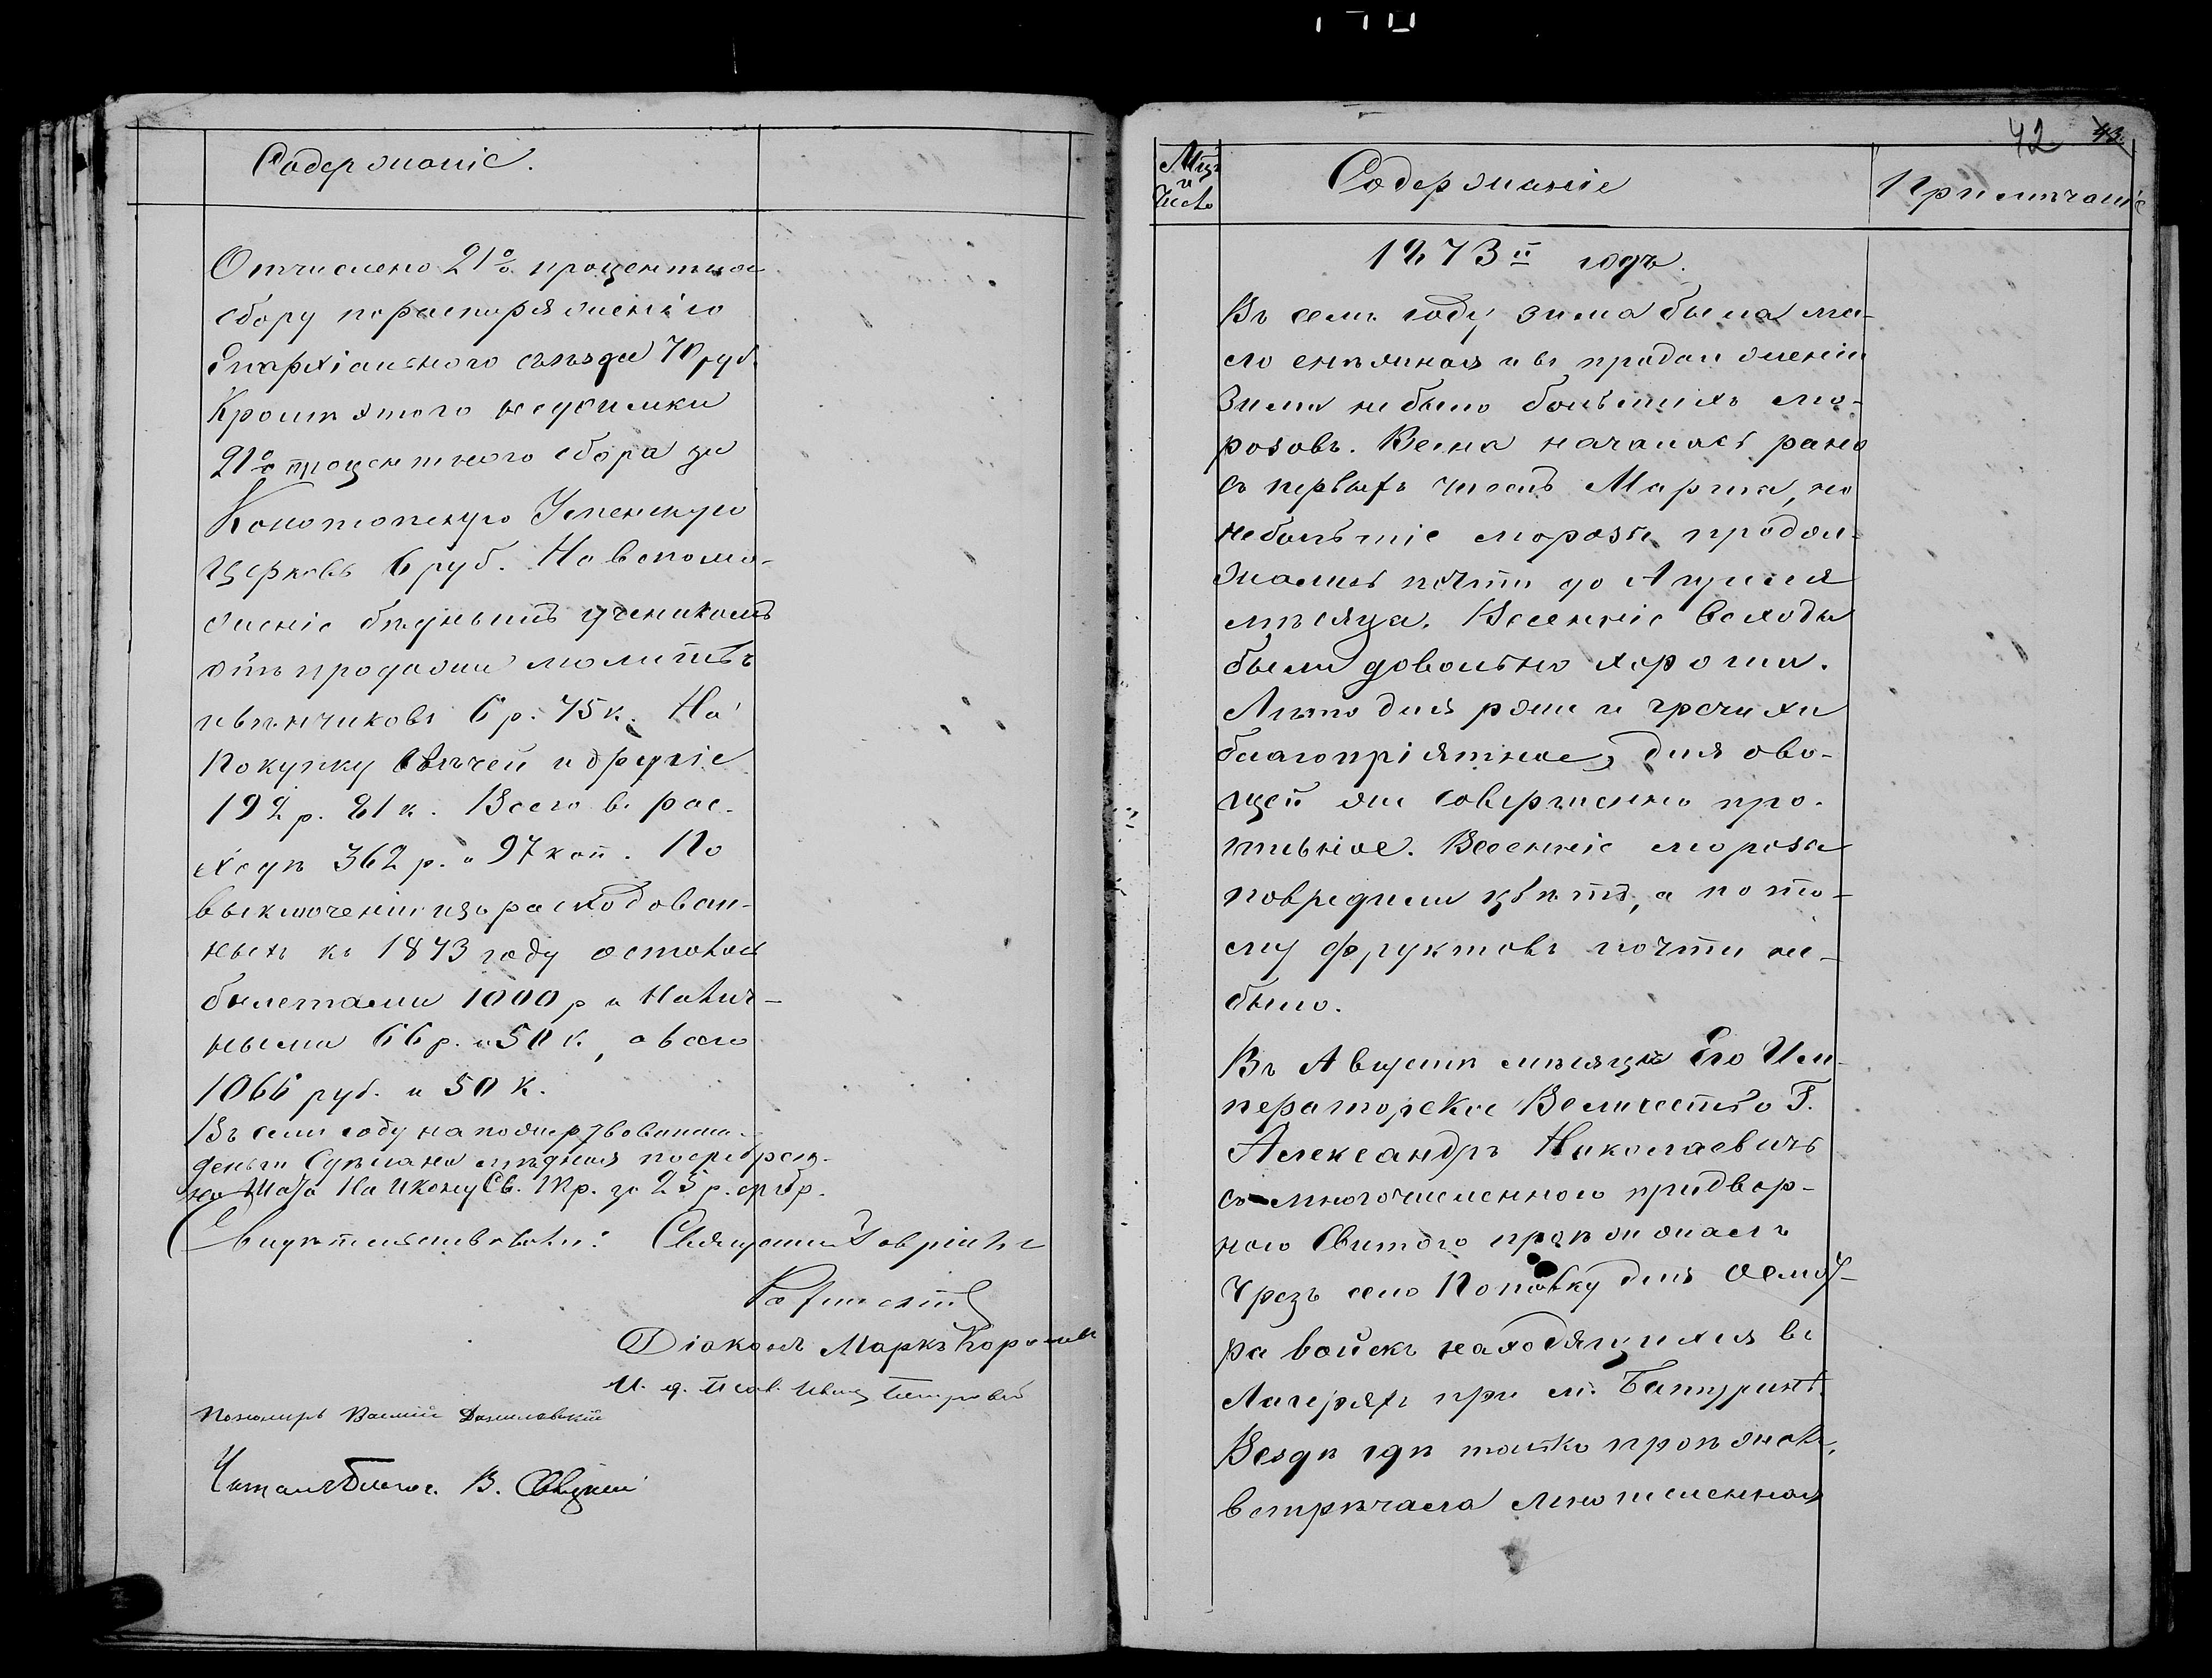 Содержаніе.
Отчислено 21% процентнаго
сбору по распоряженію
Епархіальнаго съѣзда 70 руб.
Кромѣ этого недоимки
21% процентнаго сбора за
Конотопскую Успенскую
церковь 6 руб. На вспомо-
женіе бѣднымъ ученикамъ
отъ продажи молитвъ
и вѣнчиковъ 6 р. 75 к. На
покупку свѣчей и другіе
192 р. 81 к. Всего въ рас-
ходѣ 362 р. и 97 коп. По
выключеніи израсходован-
ныхъ къ 1873 году осталось
билетами 1000 р и Налич-
ными 66 р. и 50 к., а всего
1066 руб. и 50 к.
Въ семъ году на пожертвованныя
деньги Сдѣлана мѣдная посребрен-
ная Шата На Икону Св. Пр. за 25 р. сребр.
Свидѣтельствовали: Священникъ Гавріилъ
Діаконъ Маркъ
И. д. Псал. Иванъ
Пономарь Василій Даниловскій
Читалъ Благоч. В.
42 43
Мцъ
и
Число
Содержаніе
Примѣчаніе
1873й годъ.
Въ семъ году зима была ма-
ло снѣжная и въ продолженіи
Зимы не было большихъ мо-
розовъ. Весна началась рано
съ первыхъ чиселъ Марта, но
небольшіе морозы продол-
жались почти до Апрѣля
мѣсяца. Весенніе всходы
были довольно хороши.
Лѣто для ржи и гречихи
благопріятное, для ово-
щей же совершенно про-
тивное. Весенніе морозы
повредили цвѣтъ, а пото-
му фруктовъ почти не-
было.
Въ Августѣ мѣсяцѣ Его Им-
ператорское Величество Г.
Александръ Николаевичъ
съ многочисленною придвор-
ною Свитою проѣзжалъ
Чрезъ село Поповку для осмот-
ра войскъ находящихся въ
Лагеряхъ при м. Батуринѣ.
Вездѣ гдѣ только проѣзжалъ,
встрѣчала многочисленная